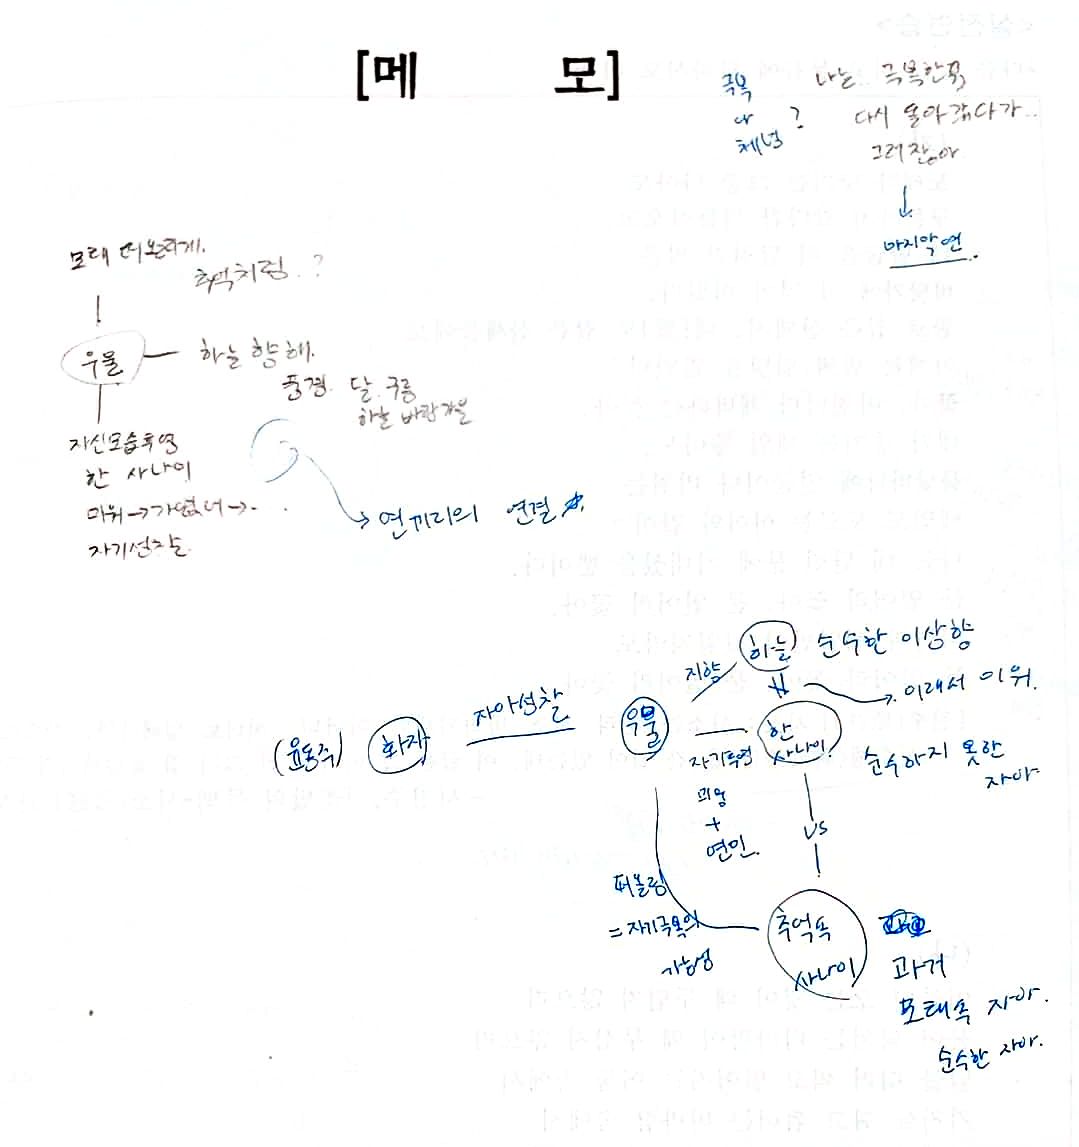 [메 모]
극복
나
체념
?
나는.. 극복한 꿈,
다시 돌아갔다가..
그러잖아
↓
마지막연.
모태 떠올리게.
추억처럼.. ?
우물 — 하늘 향해.
풍경. 달. 구름
하늘 바람 가을
자신모습투영
한 사나이
미워→가엾녀→. .
자기성찰.
→ 연끼리의 연결
하늘 순수한 이상향
지향
→ 이래서 미워.
자아성찰
(윤동주) 화자
우물
한
사나이
자기투영
순수하지 못한
자아
미움
+
연민.
VS
떠올림
= 자기극복의
가능성
추억속
사나이
과거
모태속 자아.
순수한 자아.